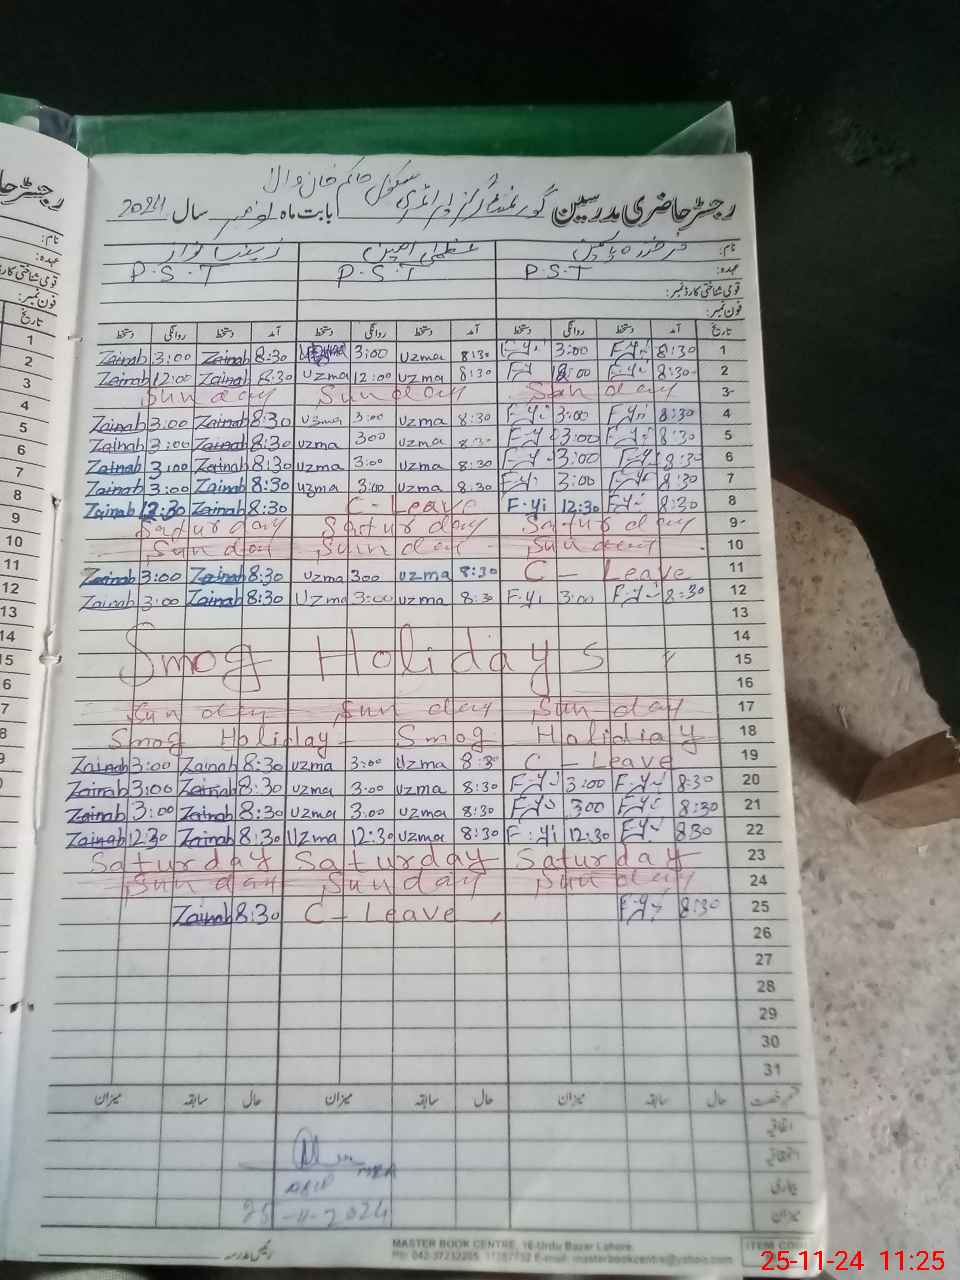 رجسٹر حاضری مدرسین گورنمنٹ گرلز پرائمری سکول حاکم خان والا بابت ماہ نومبر سال 2024
نام: عظمیٰ امین زینب نواز
عہدہ: P.S.T P.S.T P.S.T
قومی شناختی کارڈ نمبر:
فون نمبر:
تاریخ آمد دستخط روانگی دستخط آمد دستخط روانگی دستخط آمد دستخط روانگی دستخط
Zainab 3:00 Zainab 8:30 3:00 uzma 8:30 F-Yi 3:00 F-Yi 8:30 1
Zainab 12:00 Zainab 8:30 uzma 12:00 uzma 8:30 FY :00 F-Yi 8:30 2
Sunday Sunday Sunday 3
Zainab 3:00 Zainab 8:30 uzma 3:00 uzma 8:30 F-Yi 3:00 F-Yi 8:30 4
Zainab 3:00 Zainab 8:30 uzma 300 uzma 8:30 F-Y 3:00 F-Yi 8:30 5
Zainab 3:00 Zainab 8:30 uzma 3:00 uzma 8:30 F-Y 3:00 F-Yi 8:30 6
Zainab 3:00 Zainab 8:30 uzma 3:00 uzma 8:30 F-Y 3:00 F-Yi 8:30 7
Zainab 12:30 Zainab 8:30 C-Leave F-Yi 12:30 F-Yi 8:30 8
Saturday Saturday Saturday 9
Sunday Sunday Sunday 10
Zainab 3:00 Zainab 8:30 uzma 300 uzma 8:30 C-Leave 11
Zainab 3:00 Zainab 8:30 Uzma 3:00 uzma 8:30 F-Yi 3:00 F-Yi 8:30 12
13
14
Smog Holidays 15
16
Sunday Sunday Sunday 17
Smog Holiday - Smog Holidiay 18
Zainab 3:00 Zainab 8:30 uzma 3:00 Uzma 8:30 C-Leave 19
Zainab 3:00 Zainab 8:30 uzma 3:00 uzma 8:30 F-Yi 3:00 F-Yi 8:30 20
Zainab 3:00 Zainab 8:30 uzma 3:00 uzma 8:30 F-Yi 300 F-Yi 8:30 21
Zainab 12:30 Zainab 8:30 Uzma 12:30 uzma 8:30 F-Yi 12:30 F-Yi 830 22
Saturday Saturday Saturday 23
Sunday Sunday Sunday 24
Zainab 8:30 C-Leave F-Yi 8:30 25
26
27
28
29
30
31
حال سابقہ میزان حال سابقہ میزان حال سابقہ میزان
اتفاقی
میزان
25-11-2024
رئیس مدرسہ
MASTER BOOK CENTRE, 16-Urdu Bazar Lahore.
E-mail: masterbookcentre@yahoo.com
ITEM CODE
25-11-24 11:25
نام:
عہدہ:
فون نمبر:
تاریخ
1
2
3
4
5
6
7
8
9
10
11
12
13
14
15
6
7
8
9
0
1